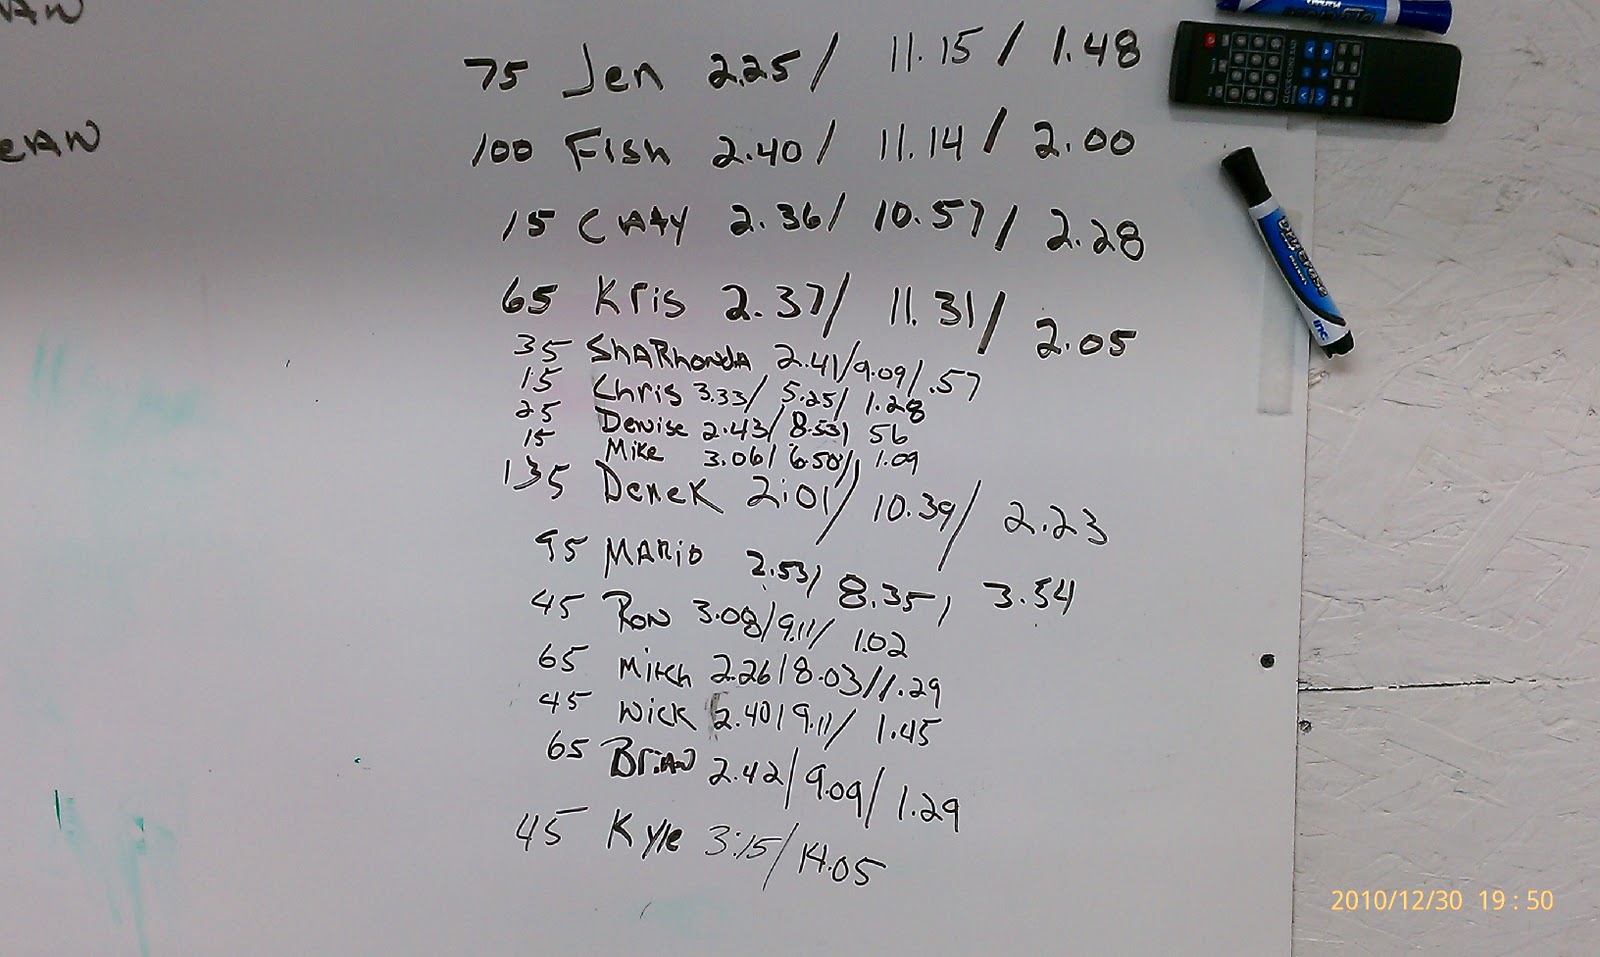 75 Jen 2.25/ 11.15/ 1.48
100 Fish 2.40/ 11.14/ 2.00
15 CHAY 2.36/ 10.57/ 2.28
65 Kris 2.37/ 11.31/ 2.05
35 ShARhondA 2.41/9.09/.57
15 Chris 3.33/ 5.25/ 1.28
25 Denise 2.43/ 8.53/ 56
15 Mike 3.06/ 6.50/, 1.09
135 Derek 2:01/ 10.39/ 2.23
95 MARIO 2.53/ 8.35/ 3.54
45 Ron 3.08/9.11/ 1.02
65 Mitch 2.26/8.03/1.29
45 Wick 2.40/9.11/ 1.45
65 BriAN 2.42/9.09/ 1.29
45 Kyle 3:15/14.05
2010/12/30 19:50